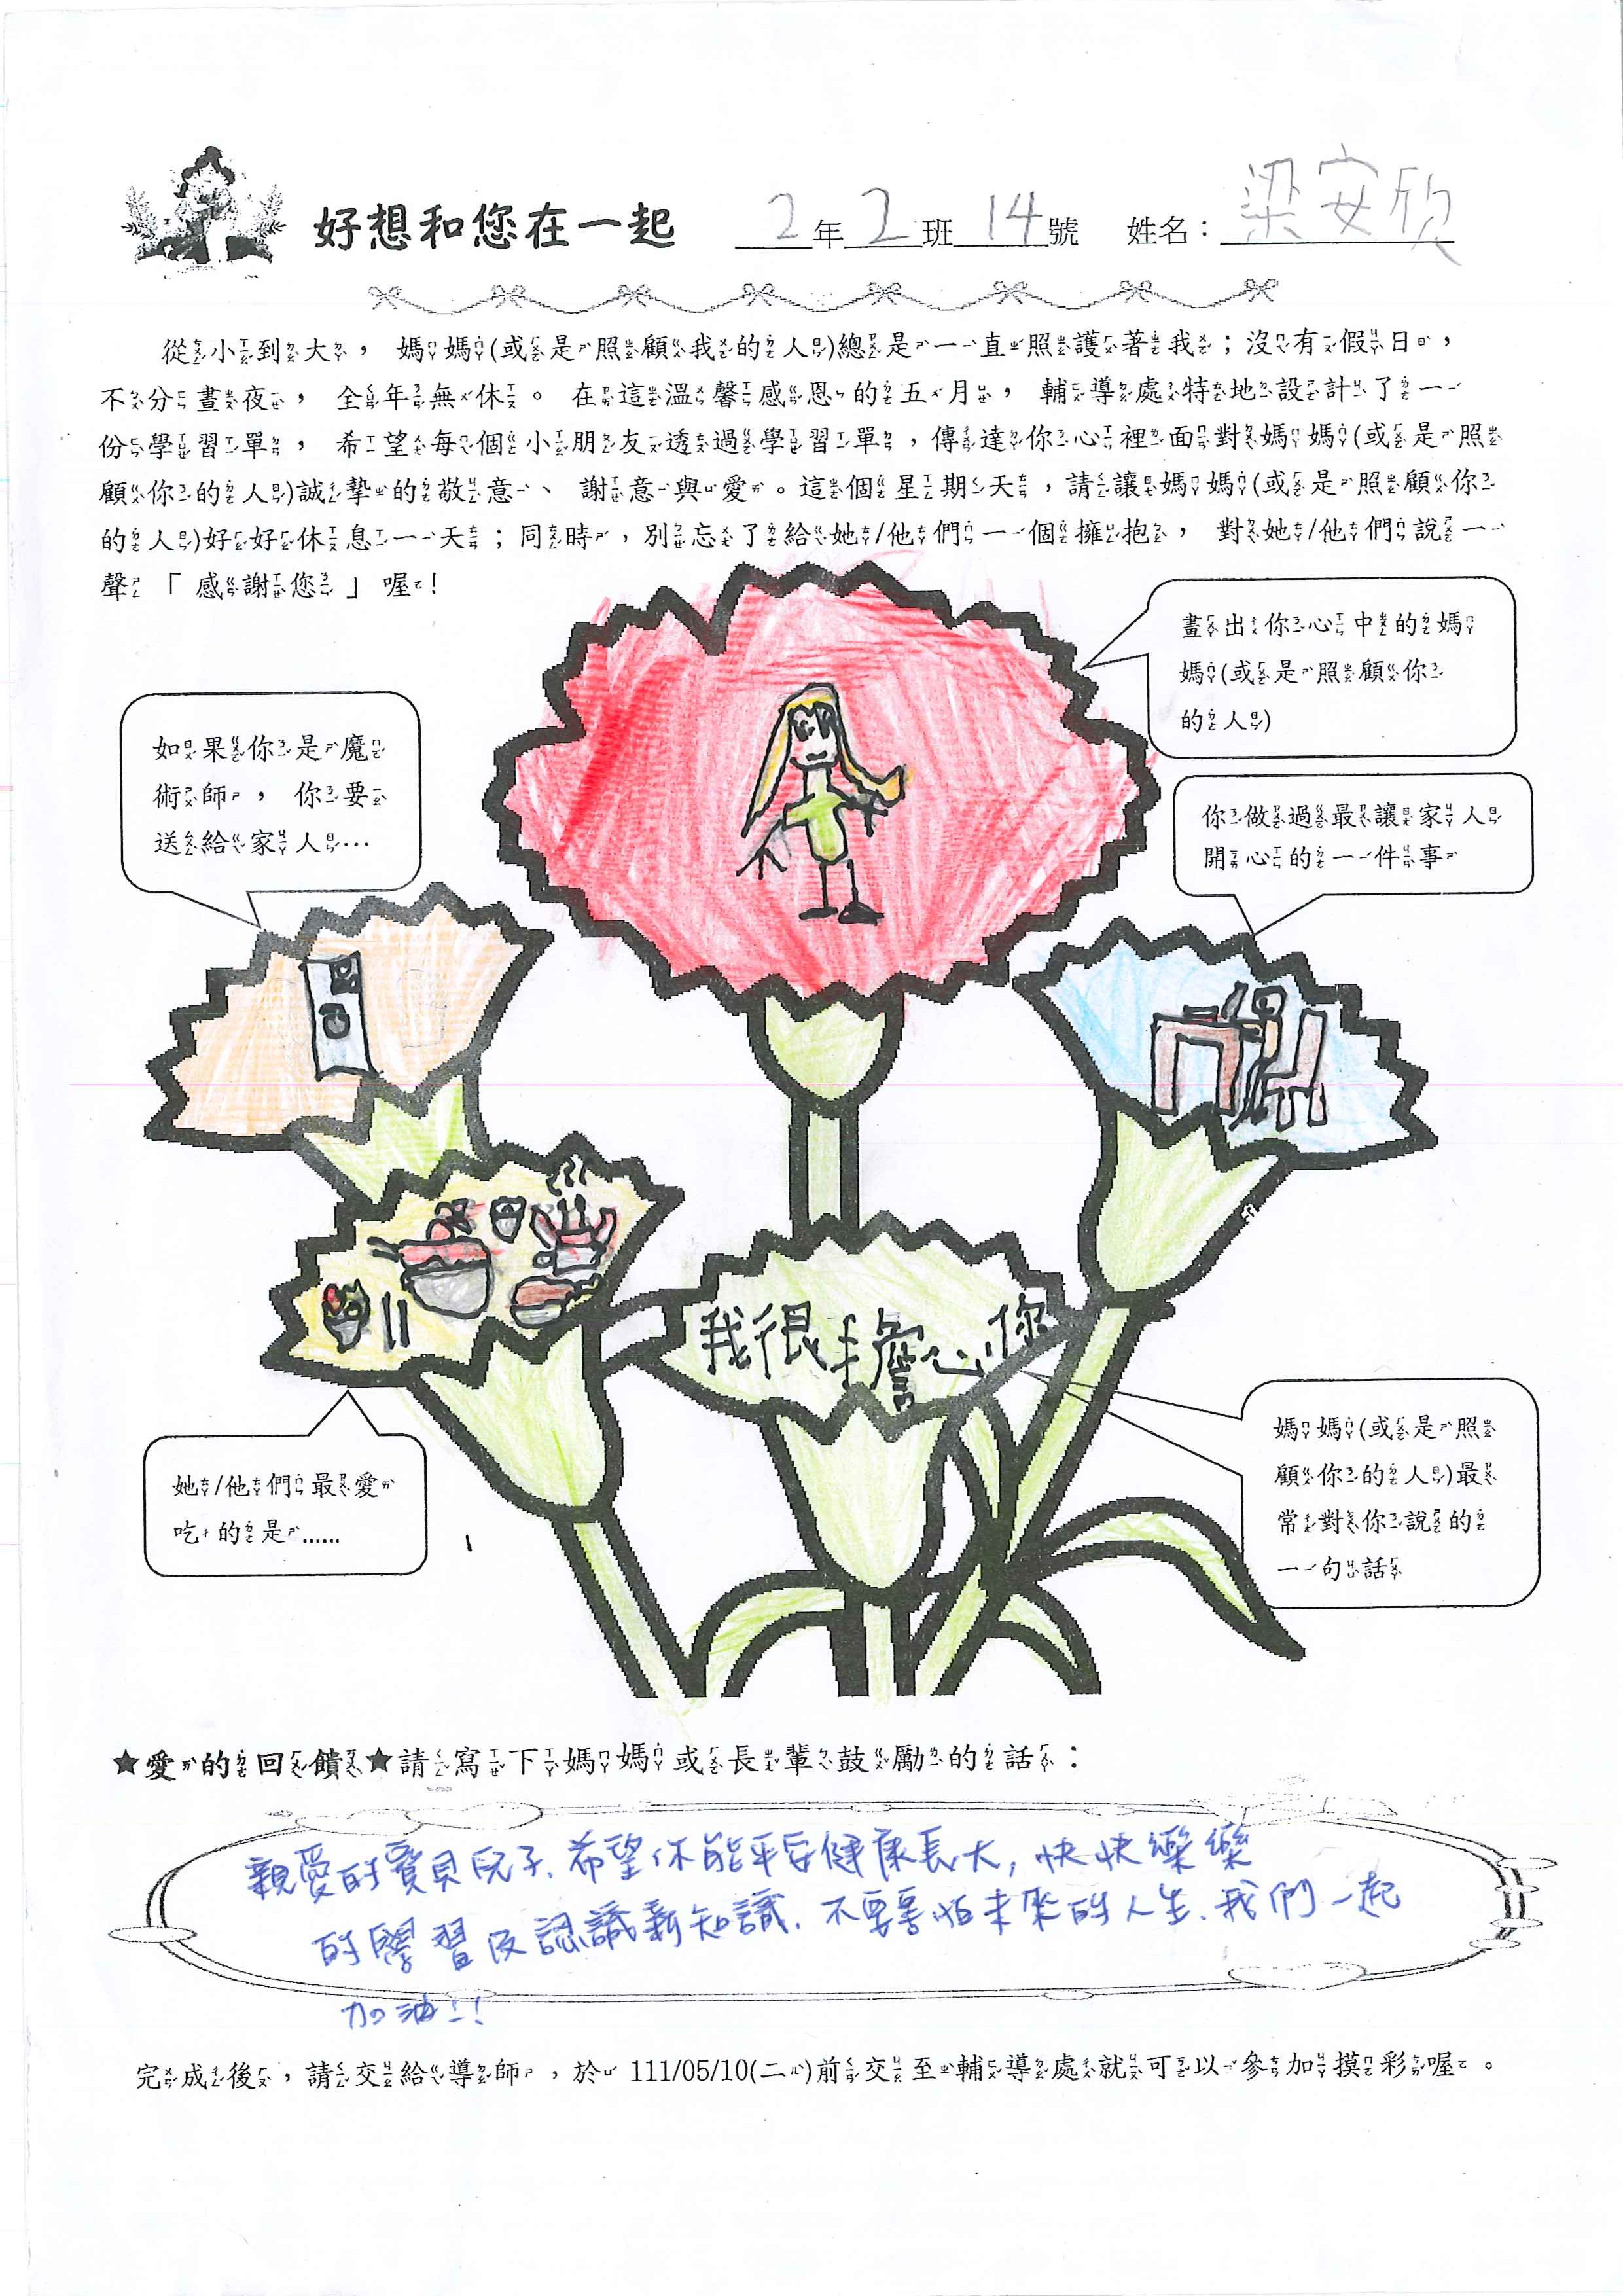 好想和您在一起 2年2班14號 姓名：梁安欣
從小到大，媽媽(或是照顧我的人)總是一直照護著我；沒有假日，
不分晝夜，全年無休。在這溫馨感恩的五月，輔導處特地設計了一
份學習單，希望每個小朋友透過學習單，傳達你心裡面對媽媽(或是照
顧你的人)誠摯的敬意、謝意與愛。這個星期天，請讓媽媽(或是照顧你
的人)好好休息一天；同時，別忘了給她/他們一個擁抱，對她/他們說一
聲「感謝您」喔！
畫出你心中的媽
媽(或是照顧你
的人)
如果你是魔
術師，你要
送給家人…
你做過最讓家人
開心的一件事
我很擔心你
媽媽(或是照
顧你的人)最
常對你說的
一句話
她/他們最愛
吃的是……
★愛的回饋★請寫下媽媽或長輩鼓勵的話：
親愛的寶貝兒子、希望你能平安健康長大，快快樂樂
的學習及認識新知識、不要害怕未來的人生、我們一起
加油!!
完成後，請交給導師，於 111/05/10(二)前交至輔導處就可以參加摸彩喔。